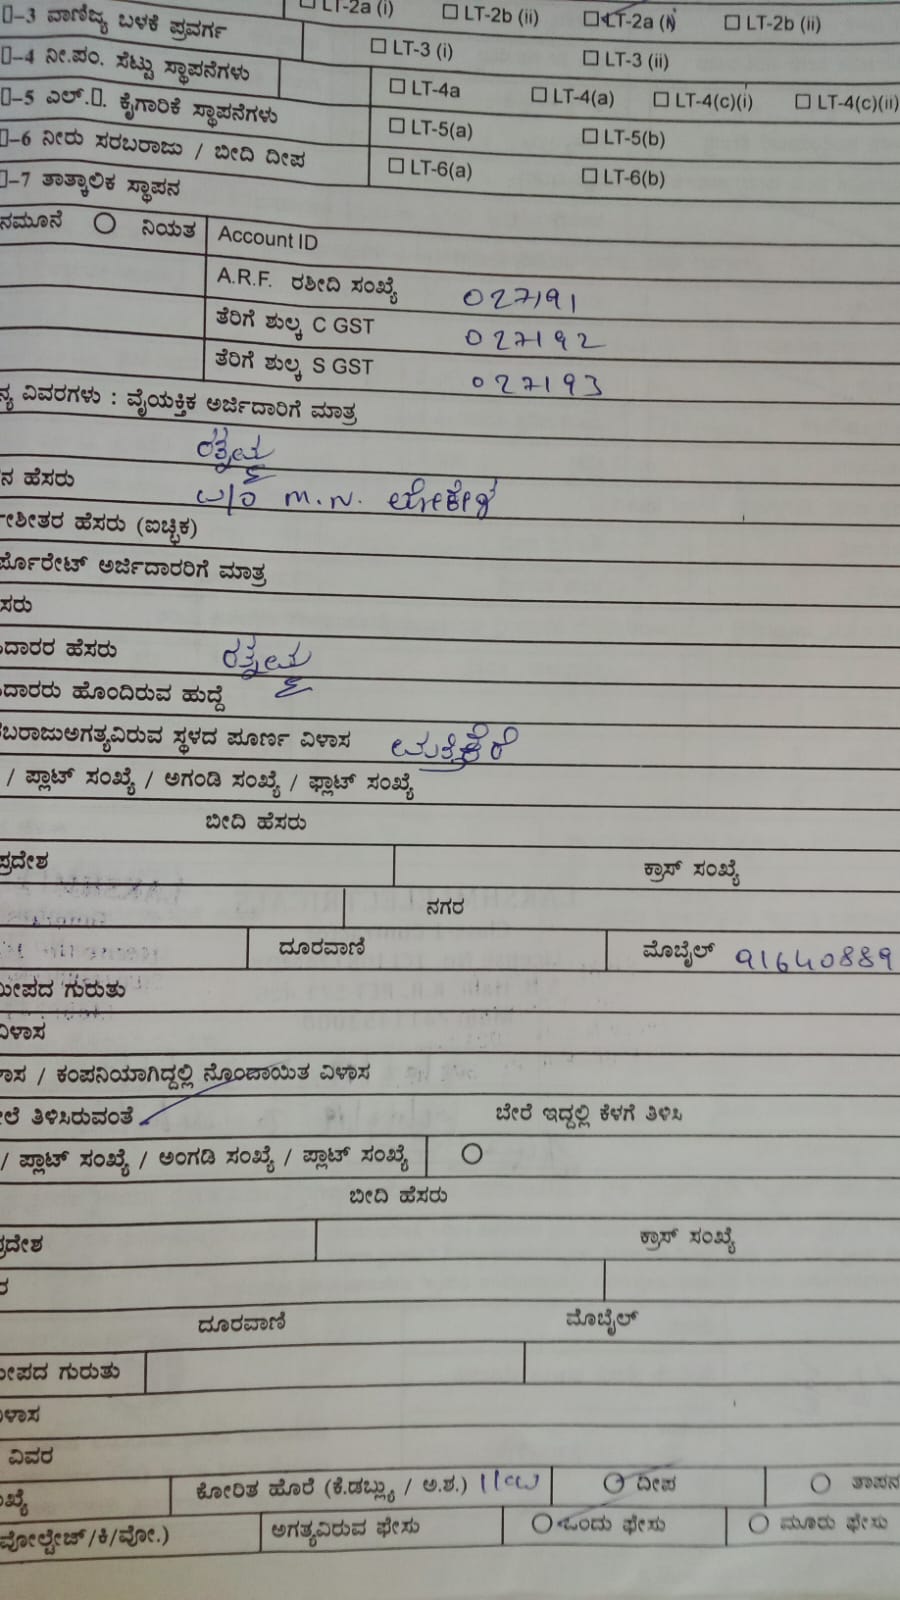 ☐ LT-2a (i) ☐ LT-2b (ii) ☐ LT-2a (i) ☐ LT-2b (ii)
–3 ವಾಣಿಜ್ಯ ಬಳಕೆ ಪ್ರವರ್ಗ ☐ LT-3 (i) ☐ LT-3 (ii)
–4 ನೀ.ಪಂ. ಸೆಟ್ಟು ಸ್ಥಾಪನೆಗಳು ☐ LT-4a ☐ LT-4(a) ☐ LT-4(c)(i) ☐ LT-4(c)(ii)
–5 ಎಲ್. ಕೈಗಾರಿಕೆ ಸ್ಥಾಪನೆಗಳು ☐ LT-5(a) ☐ LT-5(b)
–6 ನೀರು ಸರಬರಾಜು / ಬೀದಿ ದೀಪ ☐ LT-6(a) ☐ LT-6(b)
–7 ತಾತ್ಕಾಲಿಕ ಸ್ಥಾಪನ
ನಮೂನೆ ○ ನಿಯತ Account ID
A.R.F. ರಶೀದಿ ಸಂಖ್ಯೆ 027191
ತೆರಿಗೆ ಶುಲ್ಕ C GST 027192
ತೆರಿಗೆ ಶುಲ್ಕ S GST 027193
ನ್ಯ ವಿವರಗಳು : ವೈಯಕ್ತಿಕ ಅರ್ಜಿದಾರಿಗೆ ಮಾತ್ರ
ರತ್ನಮ್ಮ
ನ ಹೆಸರು W/o M.N. ಲೋಕೇಶ
ೀತರ ಹೆಸರು (ಐಚ್ಛಿಕ)
ರ್ಪೊರೇಟ್ ಅರ್ಜಿದಾರರಿಗೆ ಮಾತ್ರ
ಸರು
ದಾರರ ಹೆಸರು ರತ್ನಮ್ಮ
ದಾರರು ಹೊಂದಿರುವ ಹುದ್ದೆ
ಬರಾಜುಅಗತ್ಯವಿರುವ ಸ್ಥಳದ ಪೂರ್ಣ ವಿಳಾಸ ಮತ್ತಿಕೆರೆ
/ ಪ್ಲಾಟ್ ಸಂಖ್ಯೆ / ಅಗಂಡಿ ಸಂಖ್ಯೆ / ಫ್ಲಾಟ್ ಸಂಖ್ಯೆ
ಬೀದಿ ಹೆಸರು
ಪ್ರದೇಶ ಕ್ರಾಸ್ ಸಂಖ್ಯೆ
ನಗರ
ದೂರವಾಣಿ ಮೊಬೈಲ್ 91640889
ೀಪದ ಗುರುತು
ವಿಳಾಸ
ಾಸ / ಕಂಪನಿಯಾಗಿದ್ದಲ್ಲಿ ನೊಂದಾಯಿತ ವಿಳಾಸ
ಲೆ ತಿಳಿಸಿರುವಂತೆ ಬೇರೆ ಇದ್ದಲ್ಲಿ ಕೆಳಗೆ ತಿಳಿಸಿ
/ ಪ್ಲಾಟ್ ಸಂಖ್ಯೆ / ಅಂಗಡಿ ಸಂಖ್ಯೆ / ಪ್ಲಾಟ್ ಸಂಖ್ಯೆ ○
ಬೀದಿ ಹೆಸರು
ಪ್ರದೇಶ ಕ್ರಾಸ್ ಸಂಖ್ಯೆ
ರ
ದೂರವಾಣಿ ಮೊಬೈಲ್
ೀಪದ ಗುರುತು
ವಿಳಾಸ
ವಿವರ
ಖ್ಯೆ ಕೋರಿತ ಹೊರೆ (ಕೆ.ಡಬ್ಲ್ಯು / ಅ.ಶ.) ○ ದೀಪ ○ ತಾಪನ
ವೋಲ್ಟೇಜ್/ಕಿ/ವೋ.) ಅಗತ್ಯವಿರುವ ಫೇಸು ○ ಒಂದು ಫೇಸು ○ ಮೂರು ಫೇಸು